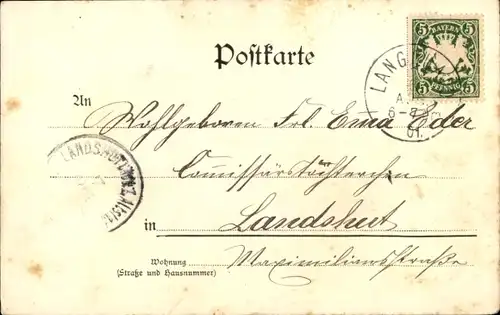 Postkarte
BAYERN
5 5
PFENNIG
5 5
LANG
6-8
01
An Wohlgeboren Frl. Erna Eder
Commissärstöchterchen
LANDSHUT
in Landshut
Wohnung
(Straße und Hausnummer)
Maximiliansstraße